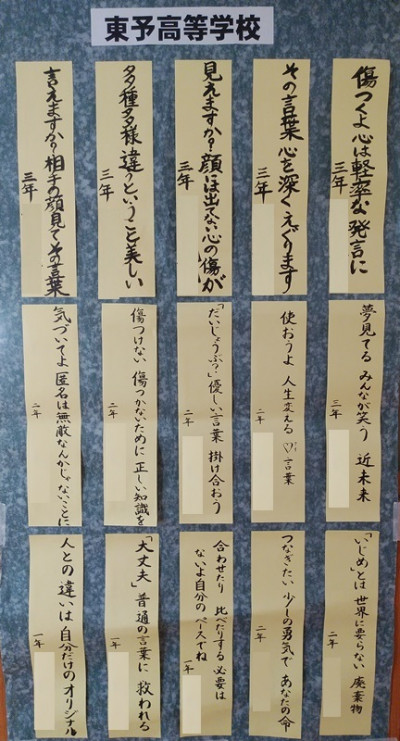 東予高等学校
傷つくよ心は軽率な発言に
三年
その言葉心を深くえぐります
三年
見えますか？顔には出てない心の傷が
三年
多種多様違うということ美しい
三年
言えますか？相手の顔見てその言葉
三年
夢見てる みんなが笑う 近未来
三年
使おうよ 人生変える ♡言葉
二年
「だいじょうぶ？」優しい言葉 掛け合おう
二年
傷つけない 傷つかないために 正しい知識を
二年
気づいてよ 匿名は無敵なんかじゃないことに
二年
「いじめ」とは 世界に要らない 廃棄物
二年
つなぎたい 少しの勇気で あなたの命
二年
合わせたり 比べたりする 必要は
ないよ自分の ペースでね
一年
「大丈夫」普通の言葉に 救われる
一年
人との 違いは 自分だけの オリジナル
一年